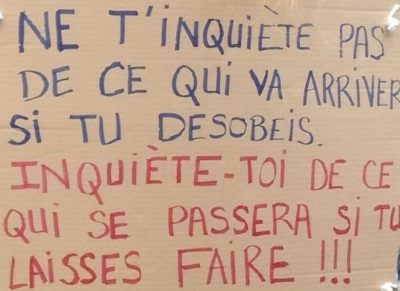 NE T'INQUIÈTE PAS
DE CE QUI VA ARRIVER
SI TU DESOBEIS.
INQUIÈTE-TOI DE CE
QUI SE PASSERA SI TU
LAISSES FAIRE !!!